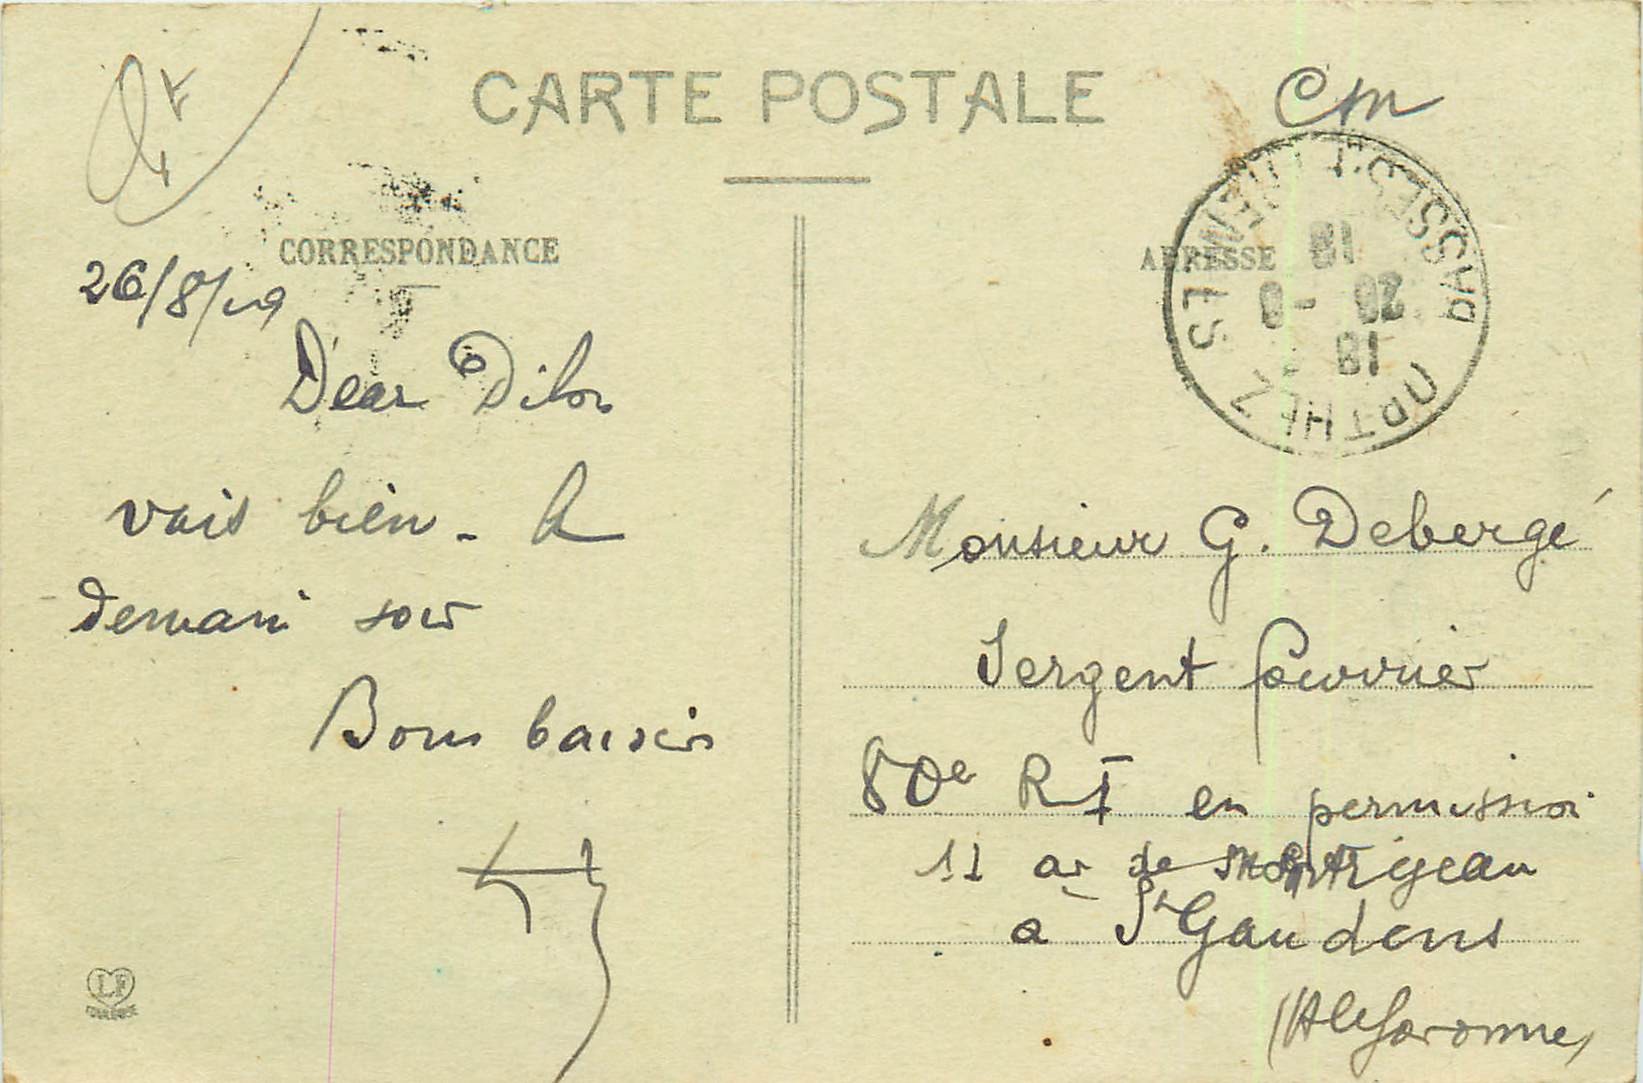 CARTE POSTALE
Cm
CORRESPONDANCE
26/8/19
Dear Dilon
vais bien - A
demain soir
Bons baisers
LF
TOULOUSE
ADRESSE
ORTHEZ
BASSES-PYRENEES
18
26 - 8
19
Monsieur G. Debergé
Sergent fourrier
80e RI en permission
11 av de Montréjeau
à St Gaudens
(Hte Garonne)